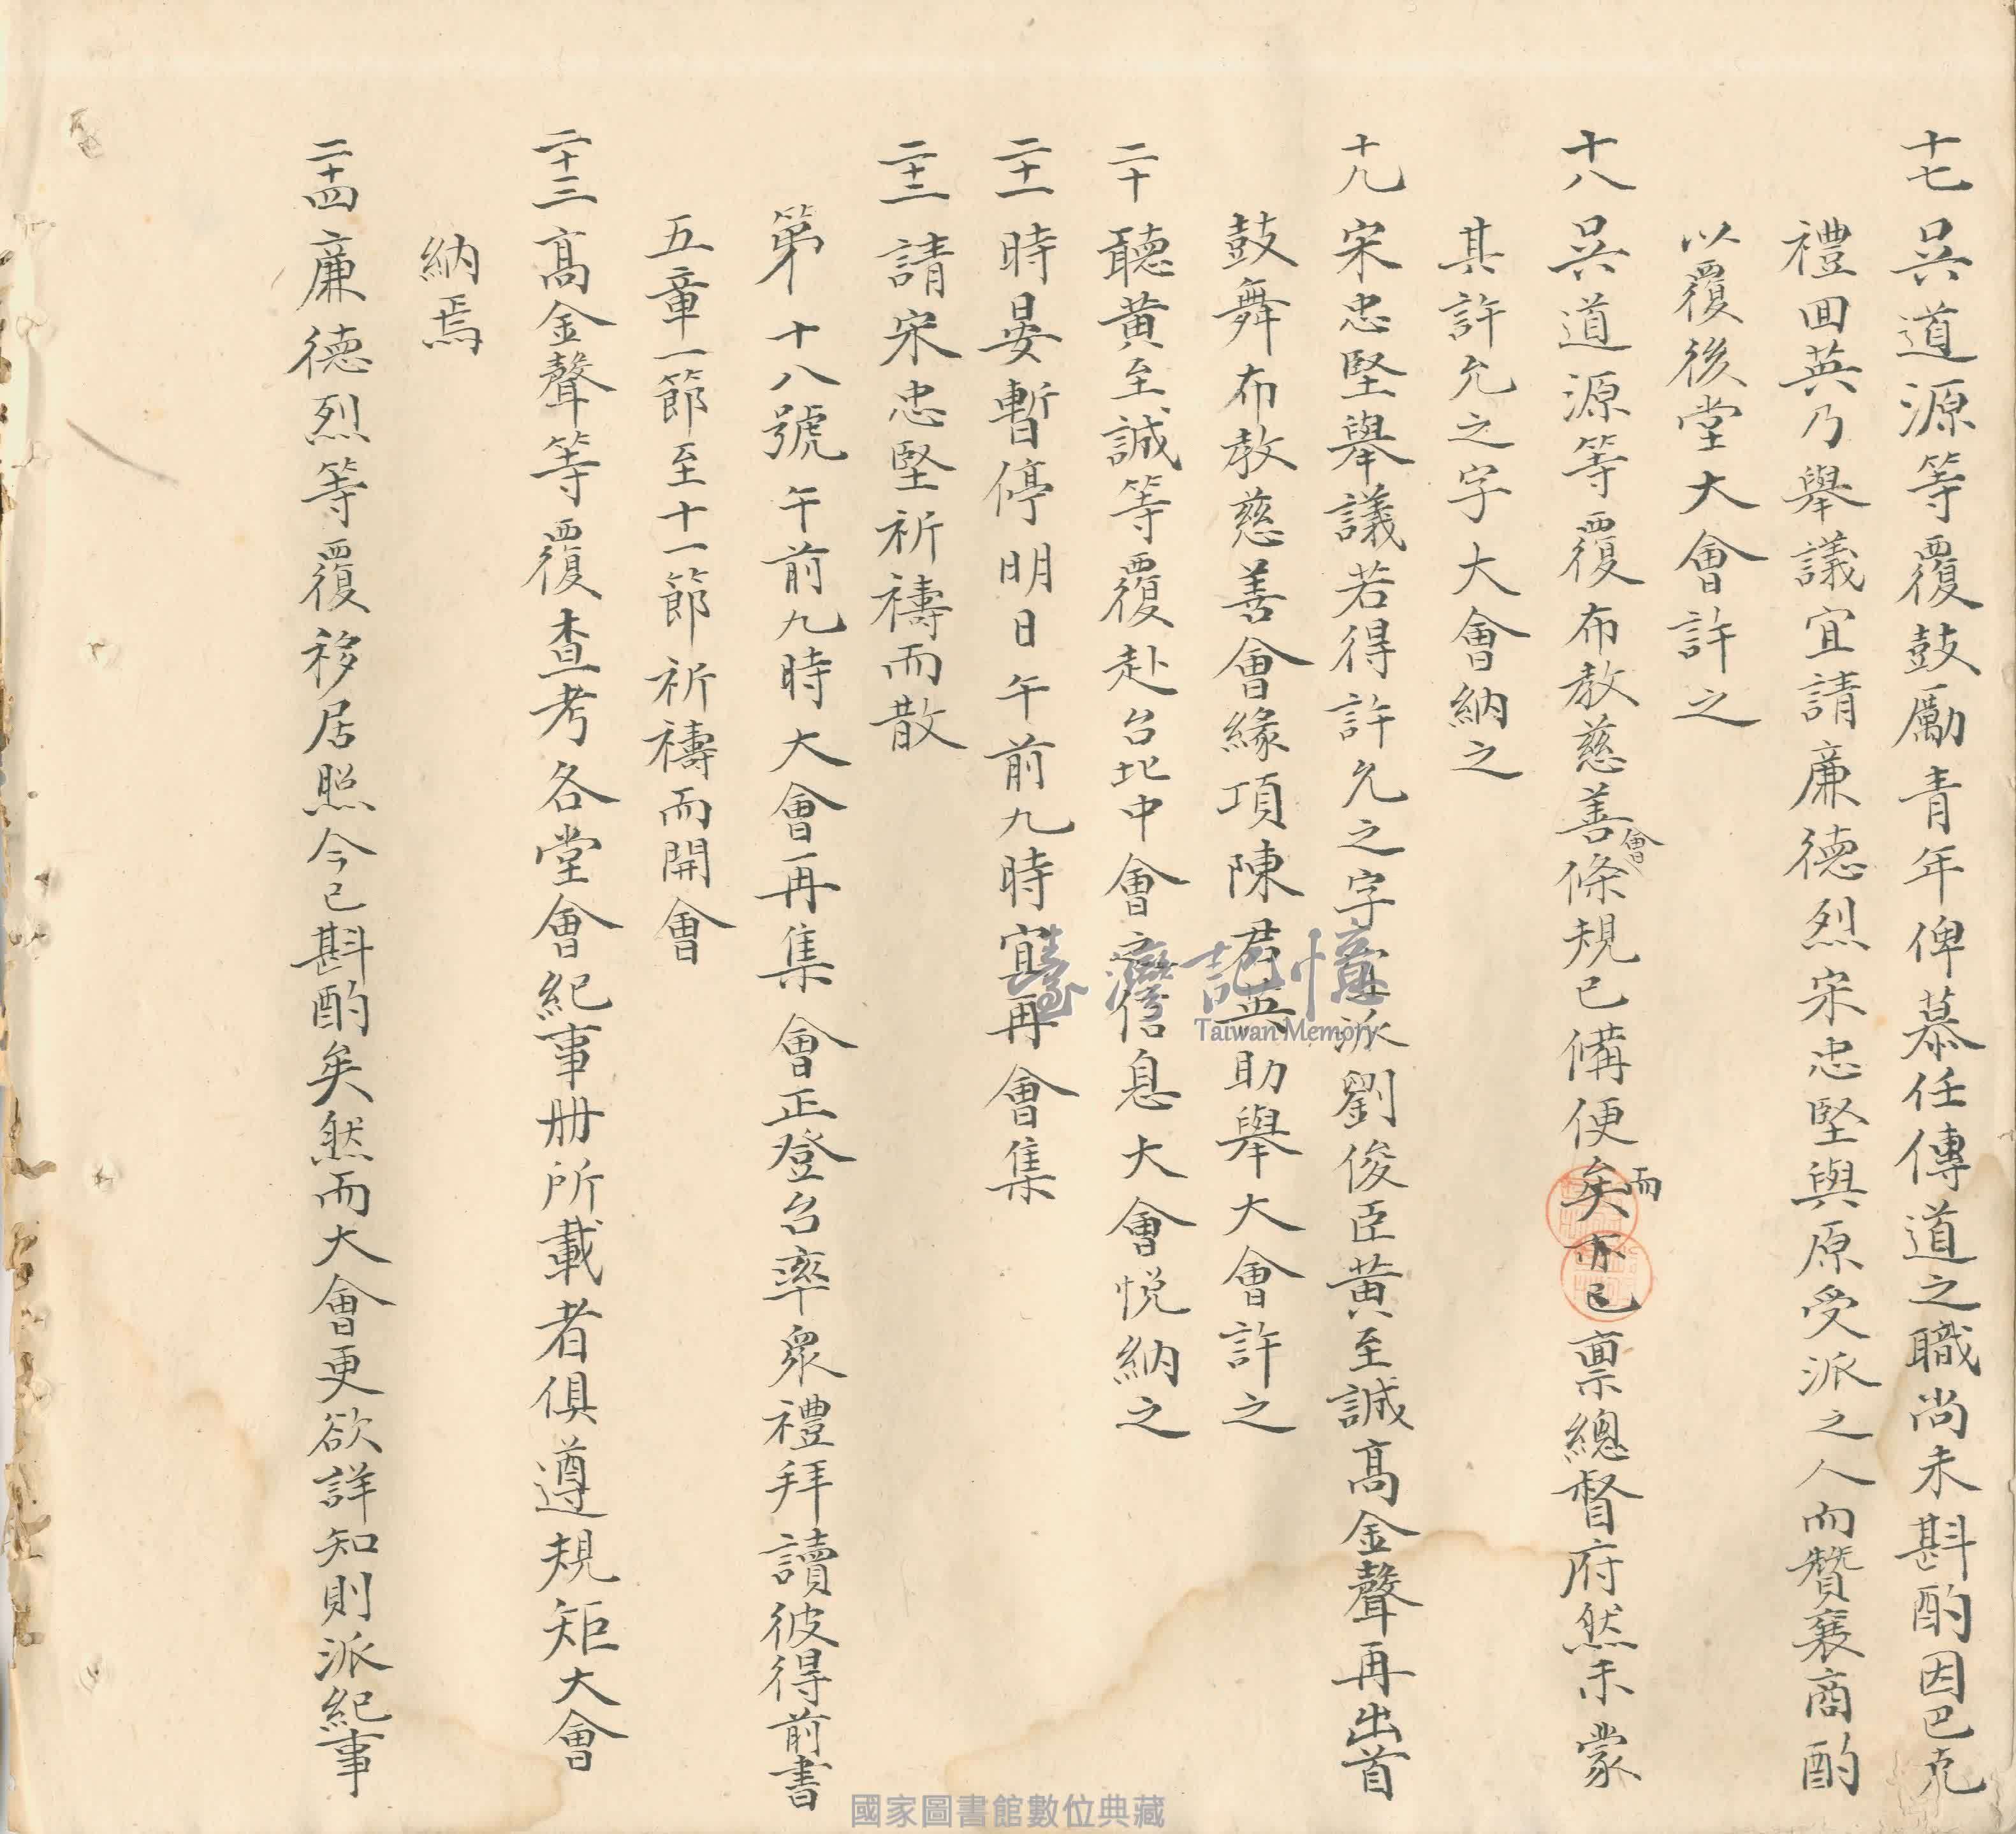 十七 吳道源等覆鼓勵青年俾慕任傳道之職尚未斟酌因巴克
禮回英乃舉議宜請廉德烈宋忠堅與原受派之人而贊襄商酌
以覆後堂大會許之
十八 吳道源等覆布教慈善會條規已備便矣而亦已稟總督府然未蒙
其許允之字大會納之
十九 宋忠堅舉議若得許允之字宜派劉俊臣黃至誠高金聲再出首
鼓舞布教慈善會緣項陳君英助舉大會許之
二十 聽黃至誠等覆赴台北中會之信息大會悅納之
二十一 時晏暫停明日午前九時宜再會集
二十二 請宋忠堅祈禱而散
第十八號午前九時大會再集會正登台率眾禮拜讀彼得前書
五章一節至十一節祈禱而開會
二十三 高金聲等覆查考各堂會紀事冊所載者俱遵規矩大會
納焉
二十四 廉德烈等覆移居照今已斟酌矣然而大會更欲詳知則派紀事
臺灣記憶
Taiwan Memory
國家圖書館數位典藏